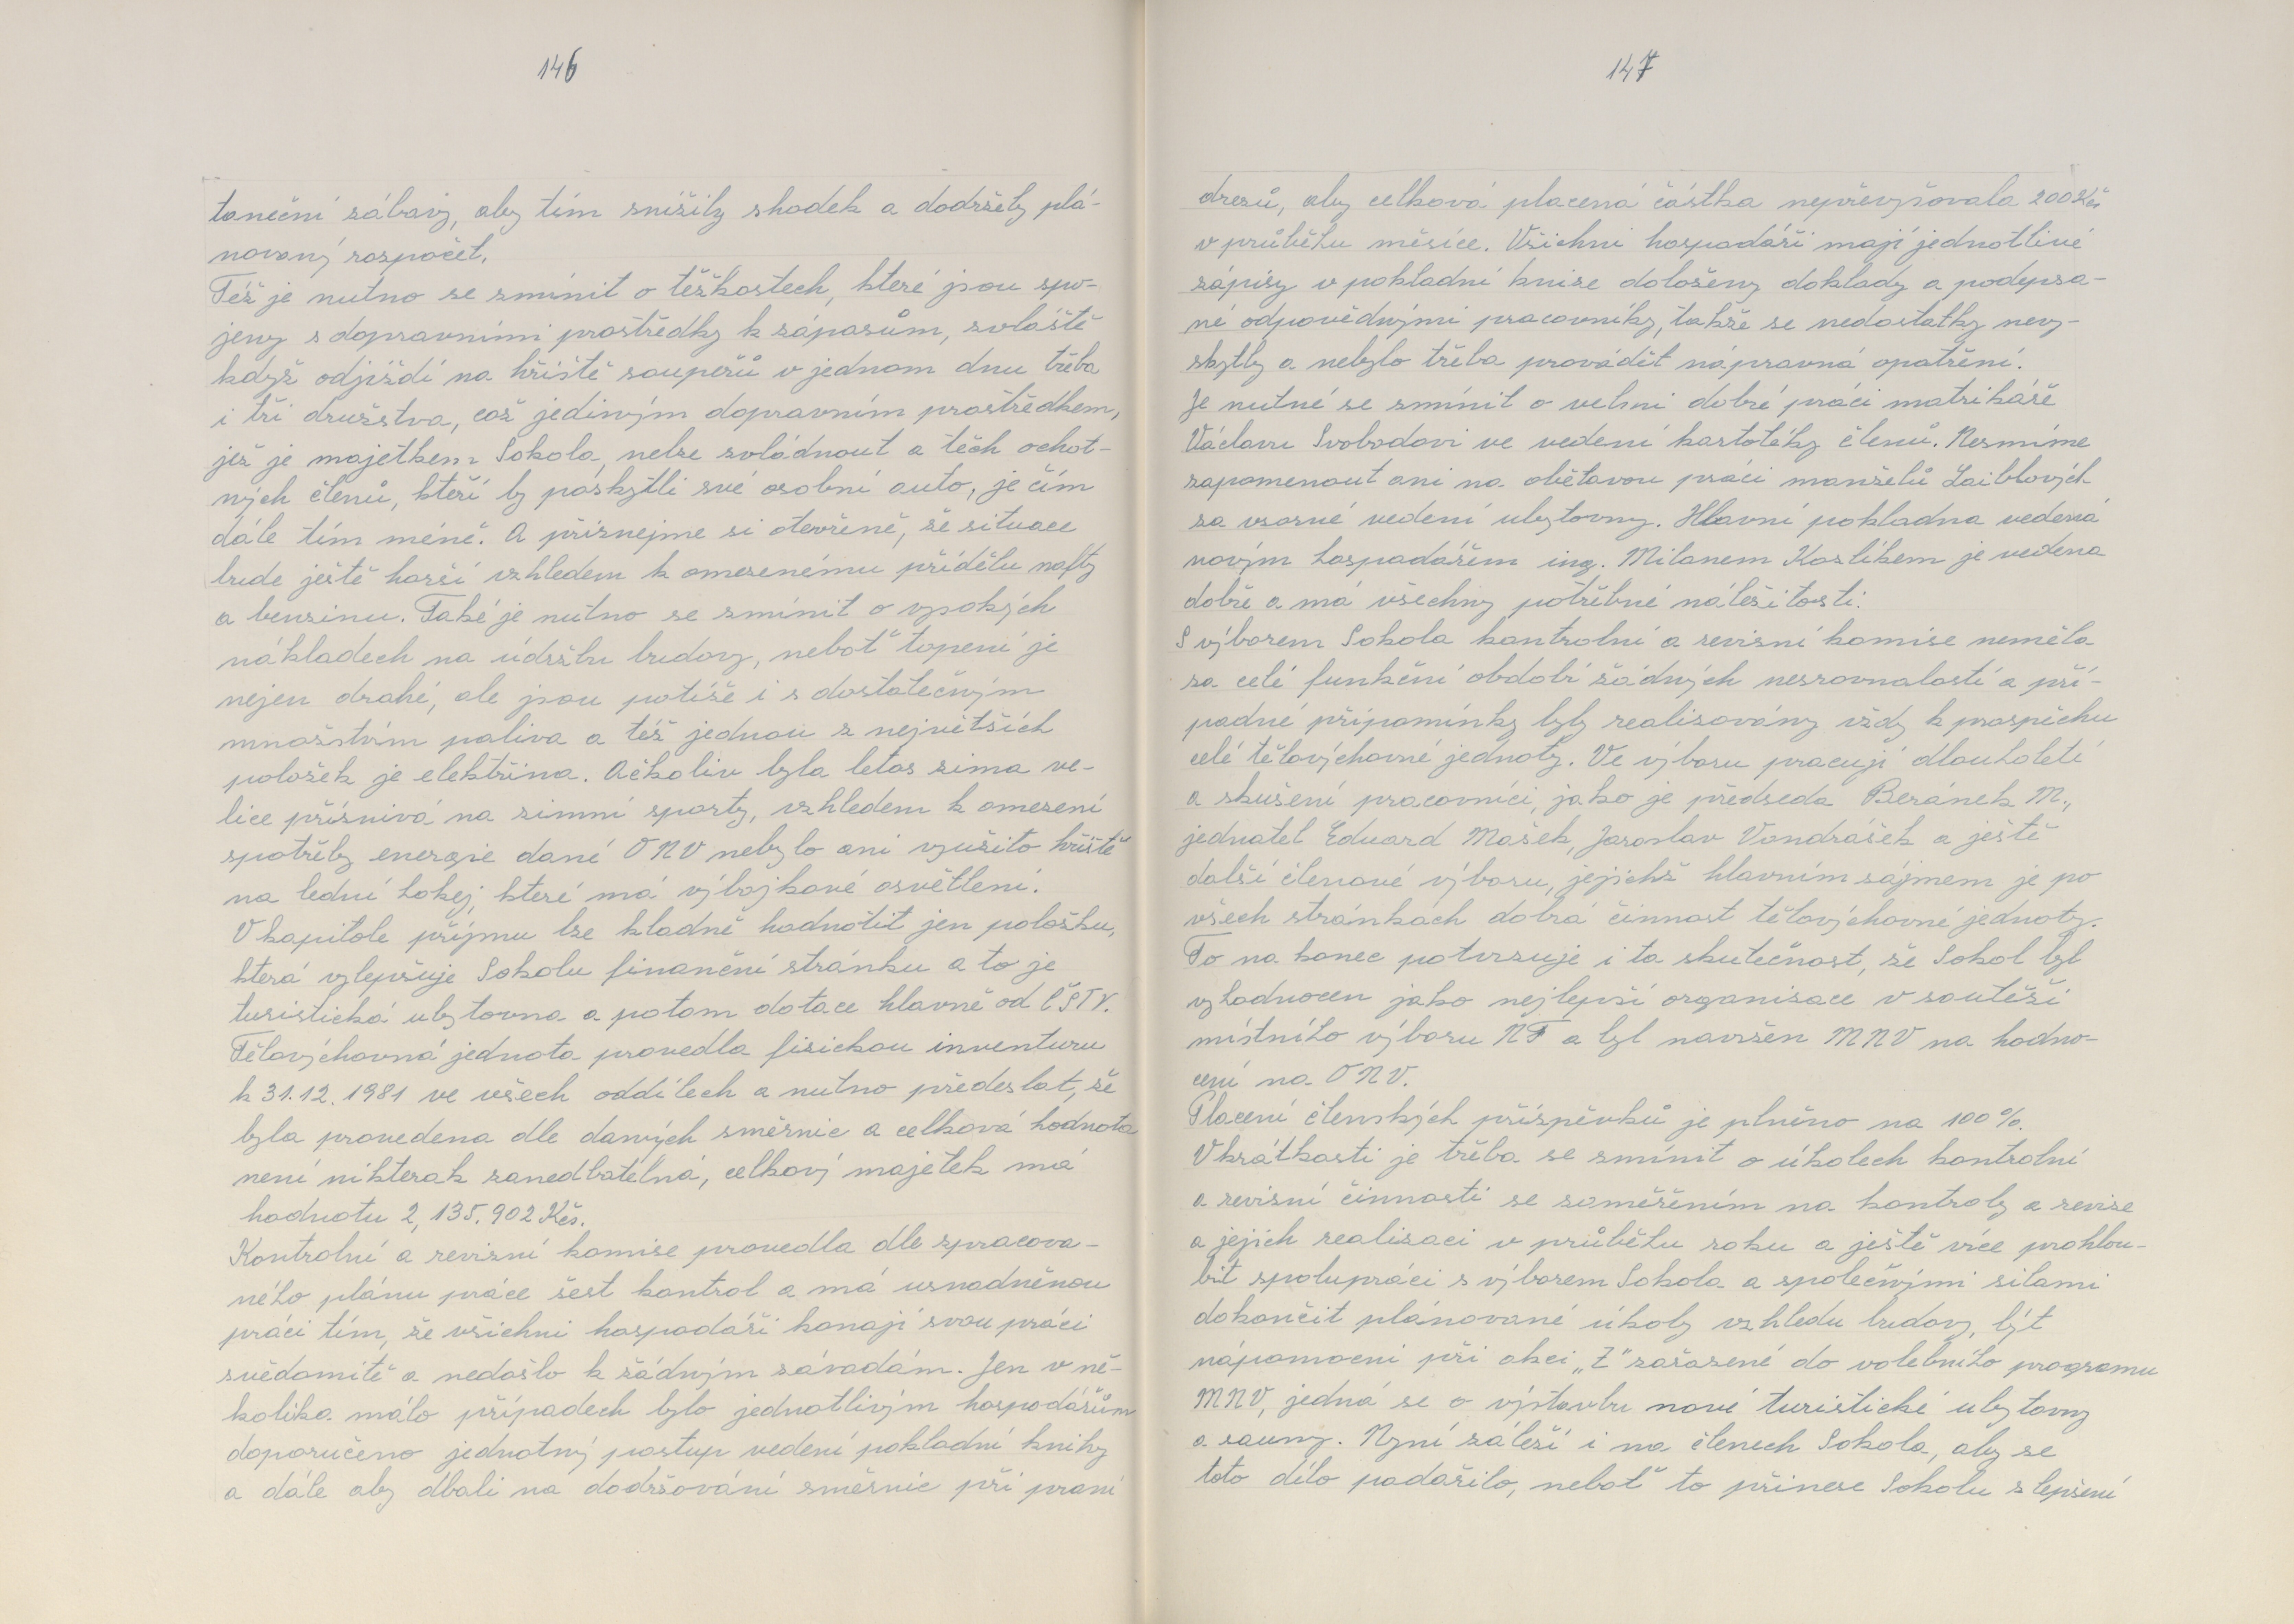 146
taneční zábavy, aby tím snížily shodek a dodržely plá-
novaný rozpočet.
Též je nutno se zmínit o těžkostech, které jsou spo-
jeny s dopravními prostředky k zápasům, zvláště
když odjíždí na hřiště soupeřů v jednom dnu třeba
i tři družstva, což jediným dopravním prostředkem,
jež je majetkem Sokola, nelze zvládnout a těch ochot-
ných členů, kteří by poskytli své osobní auto, je čím
dále tím méně. A přiznejme si otevřeně, že situace
bude ještě horší vzhledem k omezenému přídělu nafty
a benzinu. Také je nutno se zmínit o vysokých
nákladech na údržbu budovy, neboť topení je
nejen drahé, ale jsou potíže i s dostatečným
množstvím paliva a též jednou z největších
položek je elektřina. Ačkoliv byla letos zima ve-
lice příznivá na zimní sporty, vzhledem k omezení
spotřeby energie dané ONV nebylo ani využito hřiště
na lední hokej, které má výbojkové osvětlení.
V kapitole příjmu lze kladně hodnotit jen položku,
která vylepšuje Sokolu finanční stránku a to je
turistická ubytovna a potom dotace hlavně od ČSTV.
Tělovýchovná jednota provedla fisickou inventuru
k 31.12.1981 ve všech oddílech a nutno předeslat, že
byla provedena dle daných směrnic a celková hodnota
není nikterak zanedbatelná, celkový majetek má
hodnotu 2,135.902 Kčs.
Kontrolní a revizní komise provedla dle zpracova-
ného plánu práce šest kontrol a má usnadněnou
práci tím, že všichni hospodáři konají svou práci
svědomitě a nedošlo k žádným závadám. Jen v ně-
kolika málo případech bylo jednotlivým hospodářům
doporučeno jednotný postup vedení pokladní knihy
a dále aby dbali na dodržování směrnic při praní
147
dresů, aby celková placená částka nepřevyšovala 200 Kčs
v průběhu měsíce. Všichni hospodáři mají jednotlivé
zápisy v pokladní knize doloženy doklady a podepsa-
né odpovědnými pracovníky, takže se nedostatky nevy-
skytly a nebylo třeba provádět nápravná opatření.
Je nutné se zmínit o velmi dobré práci matrikáře
Václavu Svobodovi ve vedení kartotéky členů. Nesmíme
zapomenout ani na obětavou práci manželů Laiblových
za vzorné vedení ubytovny. Hlavní pokladna vedená
novým hospodářem ing. Milanem Kozlíkem je vedena
dobře a má všechny potřebné náležitosti.
S výborem Sokola kontrolní a revizní komise neměla
za celé funkční období žádných nesrovnalostí a pří-
padné připomínky byly realizovány vždy k prospěchu
celé tělovýchovné jednoty. Ve výboru pracují dlouholetí
a zkušení pracovníci, jako je předseda Beránek M.,
jednatel Eduard Mašek, Jaroslav Vondrášek a ještě
další členové výboru, jejichž hlavním zájmem je po
všech stránkách dobrá činnost tělovýchovné jednoty.
To na konec potvrzuje i ta skutečnost, že Sokol byl
vyhodnocen jako nejlepší organizace v soutěži
místního výboru NF a byl navržen MNV na hodno-
cení na ONV.
Placení členských příspěvků je plněno na 100%.
V krátkosti je třeba se zmínit o úkolech kontrolní
a revizní činnosti se zaměřením na kontroly a revize
a jejich realizaci v průběhu roku a ještě více prohlou-
bit spolupráci s výborem Sokola a společnými silami
dokončit plánované úkoly vzhledu budovy, být
nápomocni při akci „Z" zařazené do volebního programu
MNV, jedná se o výstavbu nové turistické ubytovny
a sauny. Nyní záleží i na členech Sokola, aby se
toto dílo podařilo, neboť to přinese Sokolu zlepšení